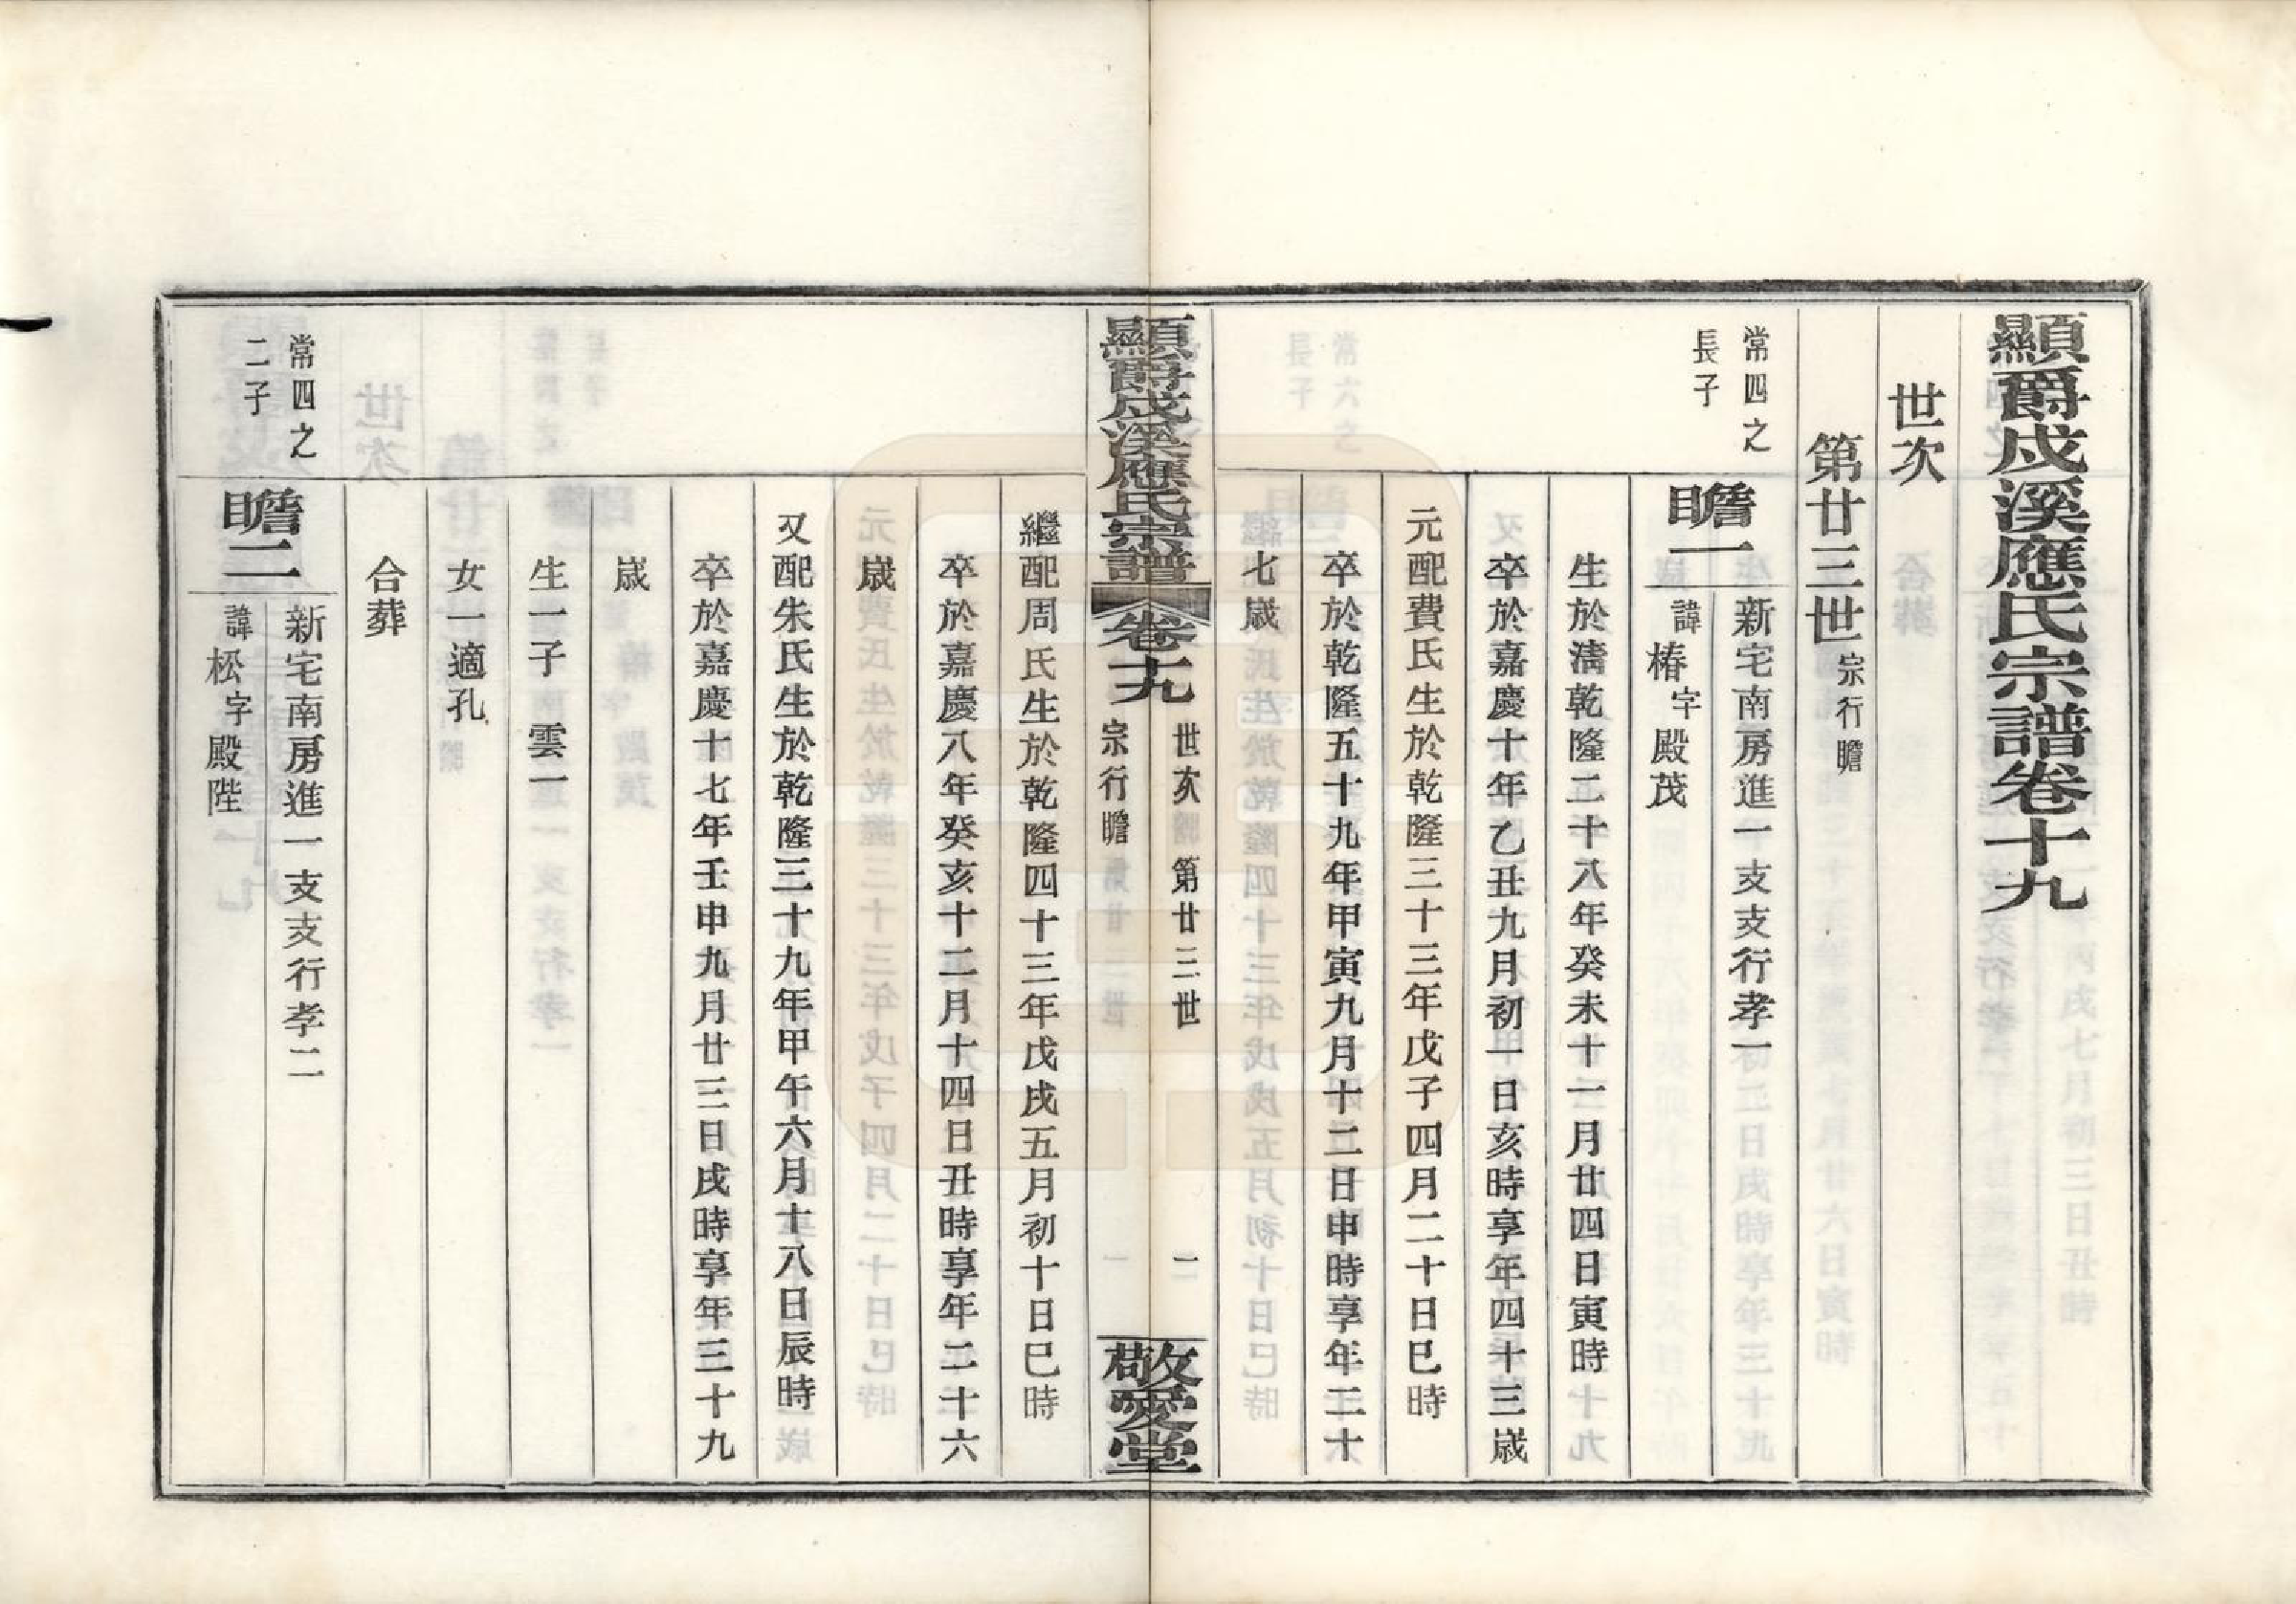 顯爵戍溪應氏宗譜卷十九
世次
第廿三世宗行瞻
常四之
長子
瞻一
新宅南房進一支支行孝一
諱椿字殿茂
生於清乾隆二十八年癸未十一月廿四日寅時
卒於嘉慶十年乙丑九月初一日亥時享年四十三歲
元配費氏生於乾隆三十三年戊子四月二十日巳時
卒於乾隆五十九年甲寅九月十二日申時享年二十
七歲
顯爵戍溪應氏宗譜
卷十九
世次 第廿三世
宗行瞻
一
敬愛堂
繼配周氏生於乾隆四十三年戊戌五月初十日巳時
卒於嘉慶八年癸亥十二月十四日丑時享年二十六
歲
又配朱氏生於乾隆三十九年甲午六月十八日辰時
卒於嘉慶十七年壬申九月廿三日戌時享年三十九
歲
生一子 雲一
女一適孔
合葬
常四之
二子
瞻二
新宅南房進一支支行孝二
諱松字殿陛